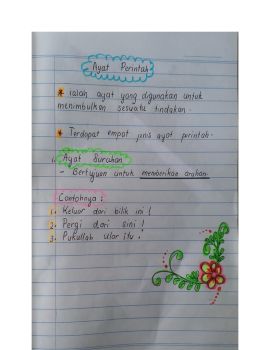 Ayat Perintah
* ialah ayat yang digunakan untuk
menimbulkan sesuatu tindakan.
* Terdapat empat jenis ayat perintah.
1. Ayat Suruhan
- Bertujuan untuk memberikan arahan.
Contohnya :
1. Keluar dari bilik ini !
2. Pergi dari sini !
3. Pukullah ular itu .